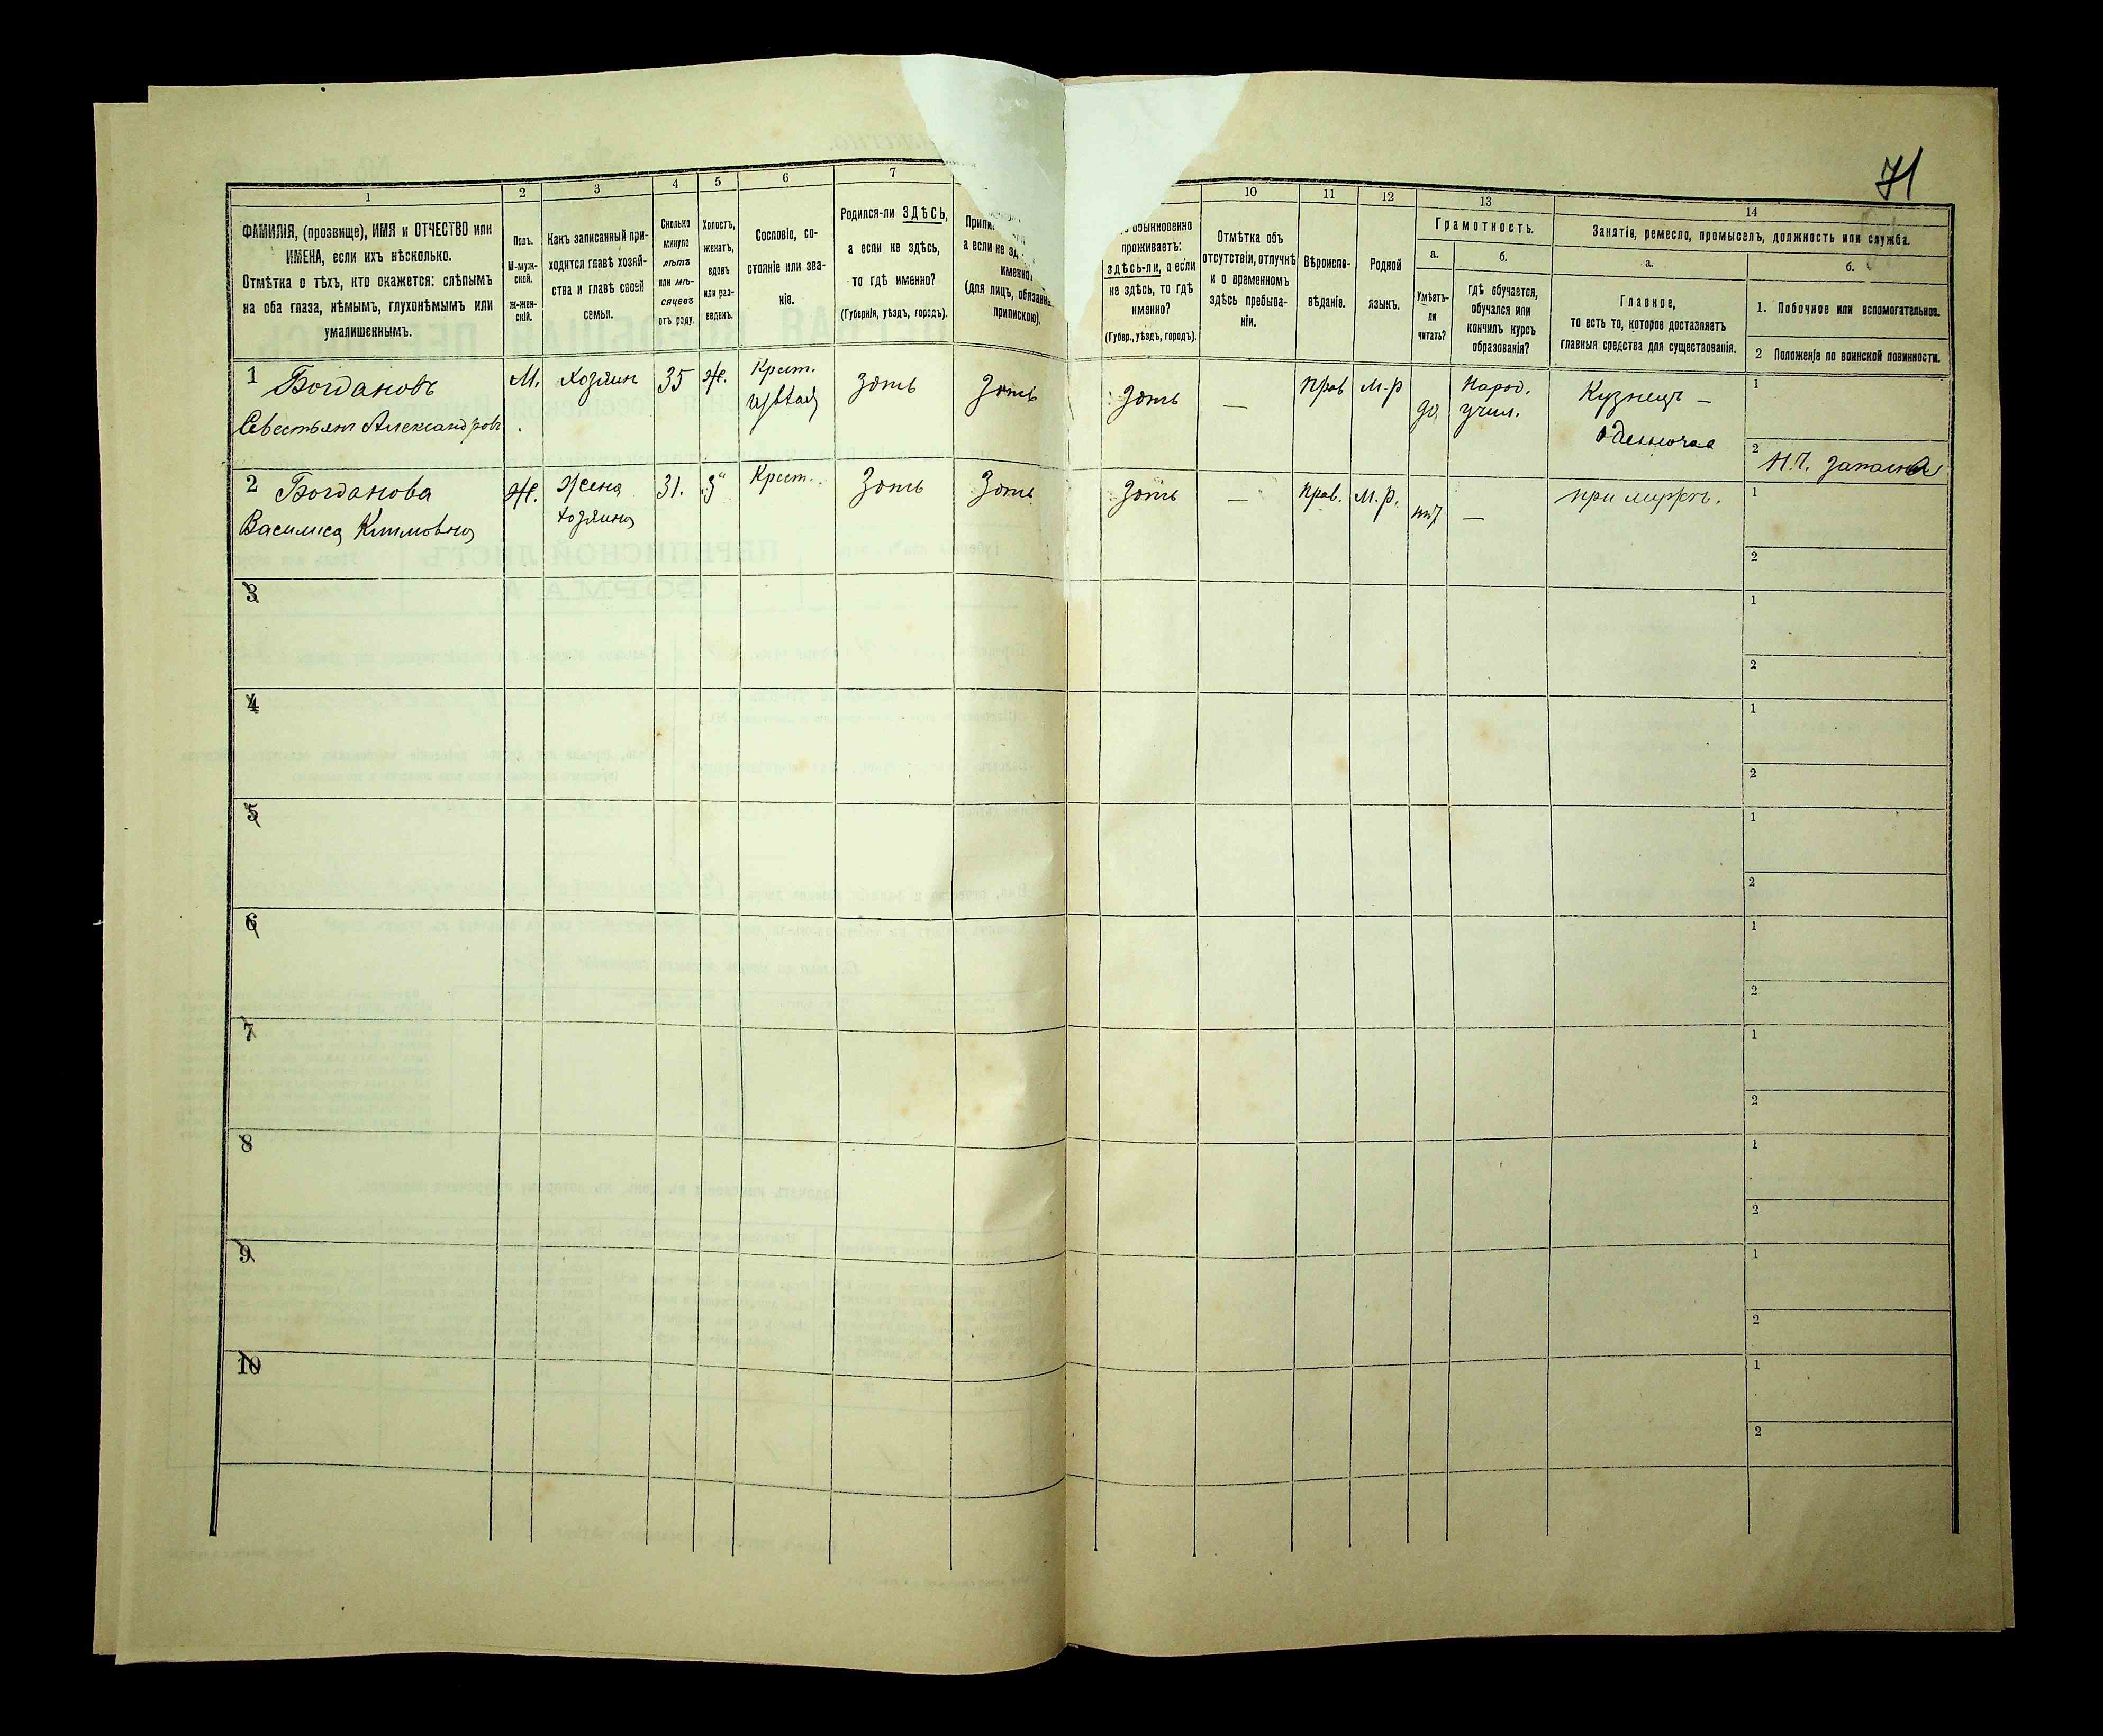 71
1
2
3
4
5
6
7
10
11
12
13
14
ФАМИЛІЯ, (прозвище), ИМЯ и ОТЧЕСТВО или
ИМЕНА, если ихъ нѣсколько.
Отмѣтка о тѣхъ, кто окажется: слѣпымъ
на оба глаза, нѣмымъ, глухонѣмымъ или
умалишеннымъ.
Полъ.
М-муж-
ской.
ж-жен-
скій.
Какъ записанный при-
ходится главѣ хозяй-
ства и главѣ своей
семьи.
Сколько
минуло
лѣтъ
или мѣ-
сяцевъ
отъ роду.
Холостъ,
женатъ,
вдовъ
или раз-
веденъ.
Сословіе, со-
стояніе или зва-
ніе.
Родился-ли ЗДѢСЬ,
а если не здѣсь,
то гдѣ именно?
(Губернія, уѣздъ, городъ).
а если не
(для лицъ,
припискою).
обыкновенно
проживаетъ:
здѣсь-ли, а если
не здѣсь, то гдѣ
именно?
(Губер., уѣздъ, городъ).
Отмѣтка объ
отсутствіи, отлучкѣ
и о временномъ
здѣсь пребыва-
ніи.
Вѣроиспо-
вѣданіе.
Родной
языкъ.
Грамотность.
а.
Умѣетъ-
ли
читать?
б.
гдѣ обучается,
обучался или
кончилъ курсъ
образованія?
Занятія, ремесло, промыселъ, должность или служба.
а.
Главное,
то есть то, которое доставляетъ
главныя средства для существованія.
б.
1. Побочное или вспомогательное.
2 Положеніе по воинской повинности.
1 Богдановъ
Севостьянъ Александровъ
М. Хозяин 35 Ж. Крест. Зѣсь Зѣсь Зѣсь — Прав М.р да Народ.
учил.
Кузнецъ —
одиночка
1
2 Н.Ч. запаса
2 Богданова
Василиса Климовна
Ж. Жена
хозяина
31. З" Крест. Зѣсь Зѣсь Зѣсь — Прав. М.р. нѣт — при мужѣ.
1
2
3
1
2
4
1
2
5
1
2
6
1
2
7
1
2
8
1
2
9
1
2
10
1
2